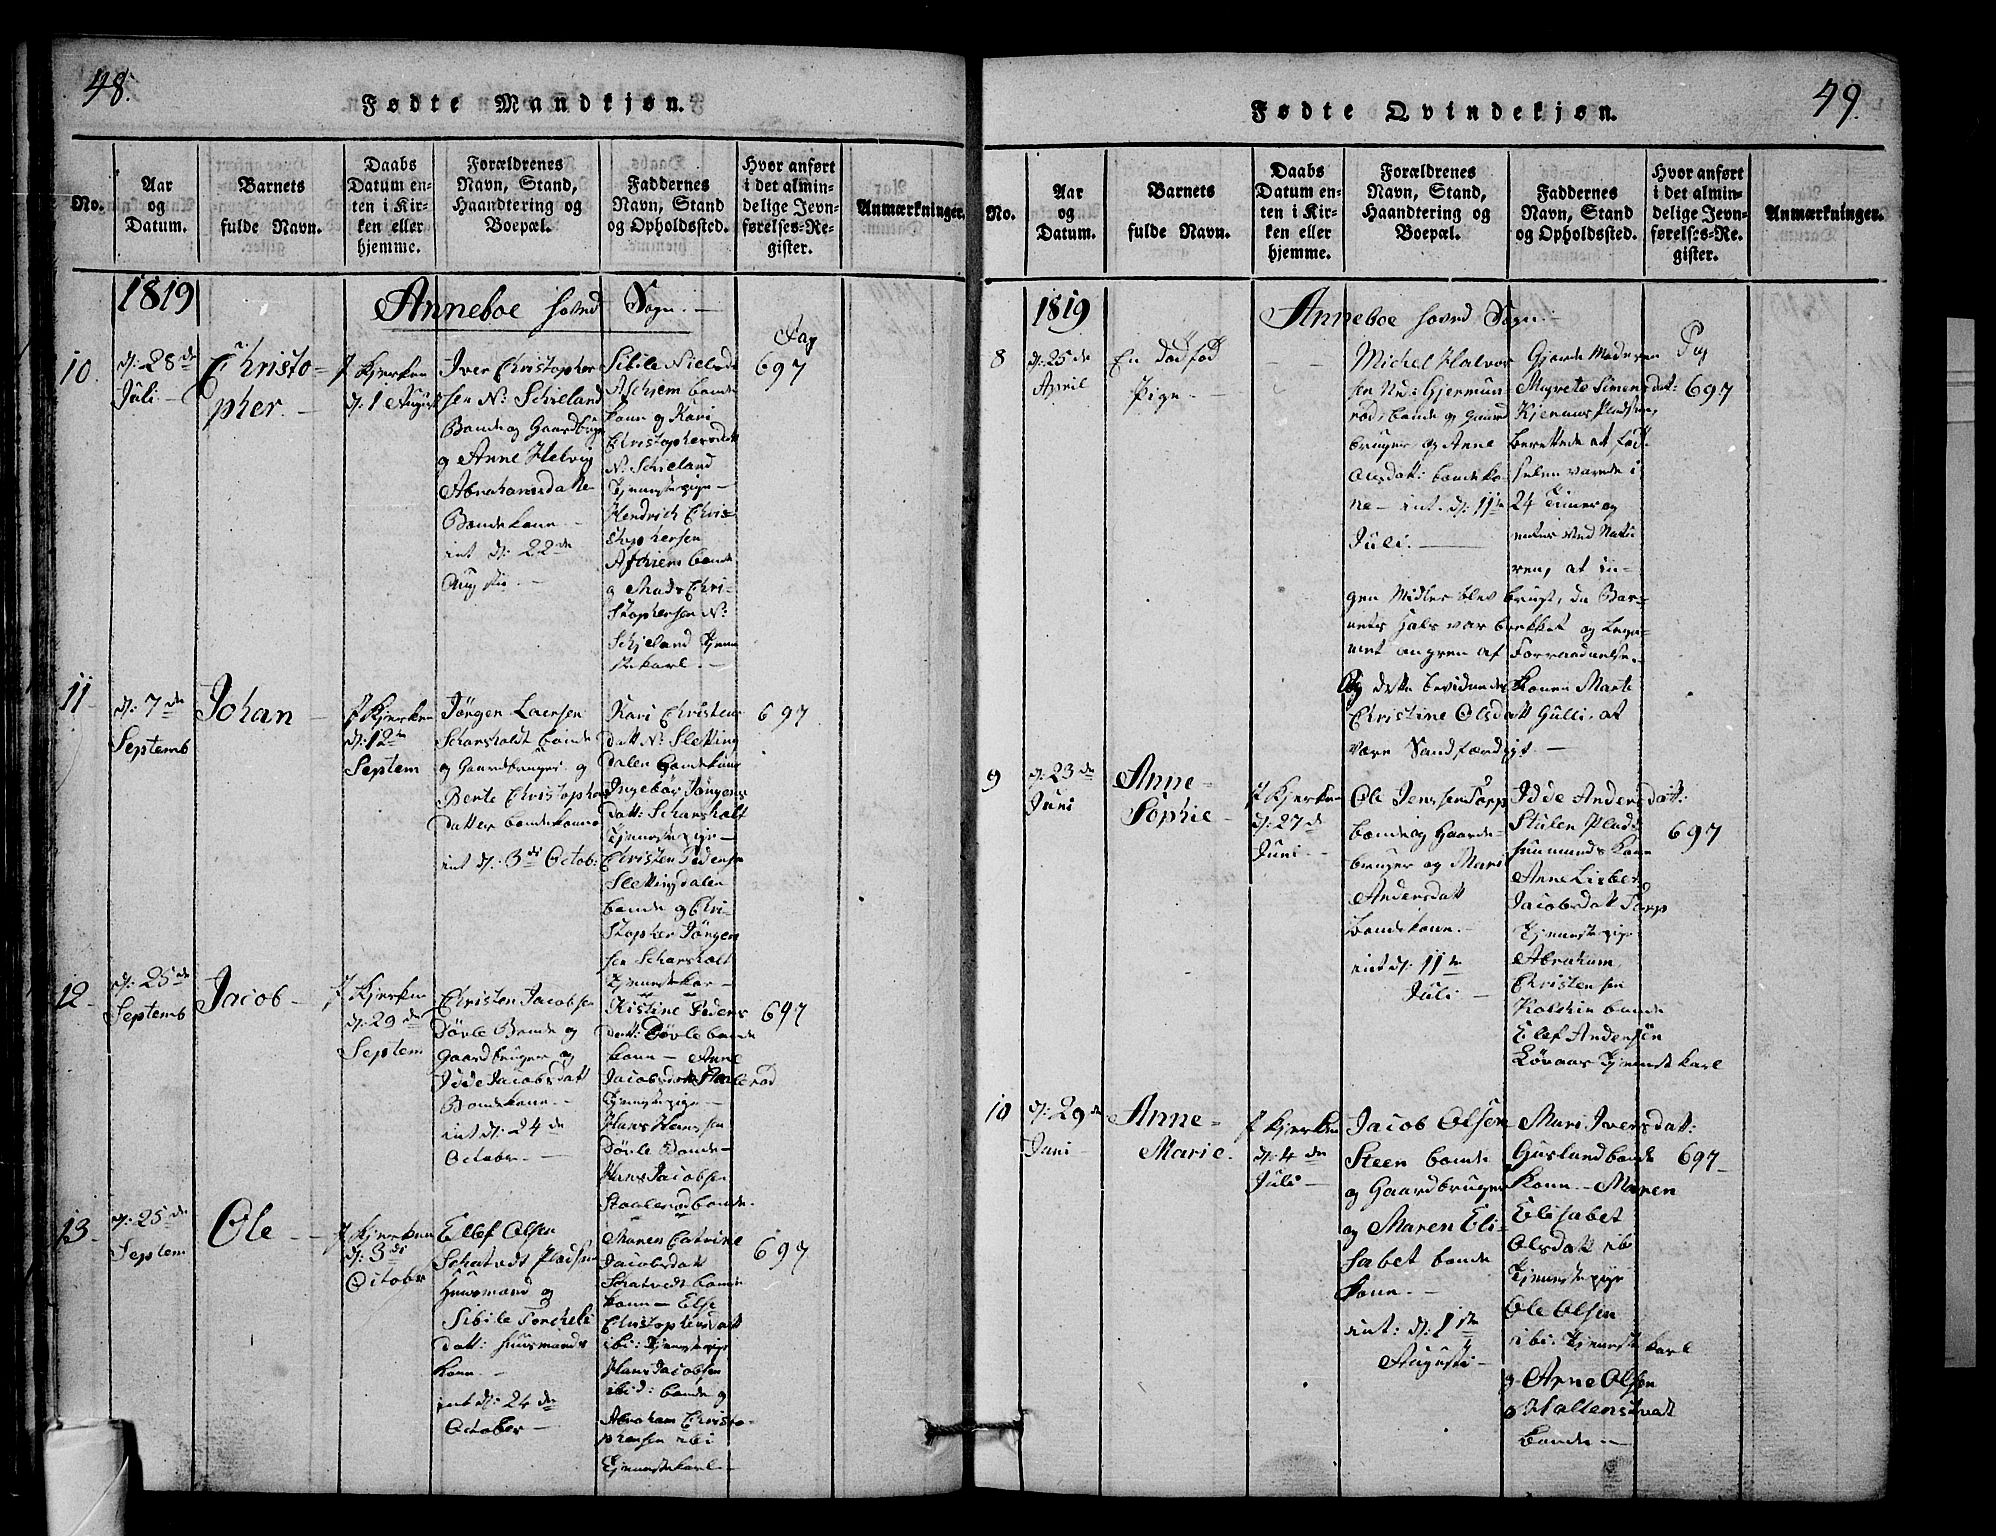 48.
Fødte Mandkjøn.
No.
Aar
og
Datum.
Barnets
fulde Navn.
Daabs
Datum en-
ten i Kir-
ken eller
hjemme.
Forældrenes
Navn, Stand,
Haandtering og
Boepæl.
Faddernes
Navn, Stand
og Opholdssted.
Hvor anført
i det almin-
delige Jevn-
førelses-Re-
gister.
Anmærkninger.
1819
Anneboe hoved Sogn. -
Pag
10.
d: 28de
Juli. -
Christo-
pher. -
I Kjerken
d: 1 August
Iver Christopher
sen N: Schieland
Bonde og Gaardbruger
og Anne Helvig
Abrahamsdatte
Bondekone. -
int d: 22de
Augusti. -
Sibile Nielsd
Aschjem bonde
kone og Kari
Christophersdatt
N: Schieland
Tjenestepige -
Hendrich Chris-
stophersen
Aschiem bonde
og Mads Chri-
stophersen N:
Schjeland Tjene
stekarl. -
697
11
d: 7de
Septemb
Johan -
I Kjerken
d: 12te
Septem
Jörgen Laersen
Scharsholdt bonde
og Gaardbruger og
Berte Christophers
datter bondekone
int d: 3di Octob:
Kari Christens
datt N: Sletting
dalen bondekone
Ingebör Jörgens
datt: Scharsholt
Tjenestepige -
Christen Pedersen
Slettingdalen
bonde og Chri-
stopher Jörgen
sen Scharsholt
Tjenestekar -
697
12
d: 25de
Septemb
Jacob -
I Kjerken
d: 29de
Septem
Christen Jacobsen
Dövle Bonde og
Gaardbruger og
Idde Jacobsdatt
Bondekone. -
int d: 24de
October. -
Kistine Peders
datt: Dövle bonde
kone - Anne
Jacobsdatt Staalerød
Tjenestepige. -
Hans Hansen
Dövle Bonde -
Hans Jacobsen
Staalerød bonde.
697
13.
d: 25de
Septem
Ole -
I Kjerken
d: 3di
October
Ellef Olsen
Schatvedt Pladsen
Huusmand og
Sibile Torchels
datt: Huusmands
kone. -
int d: 24de
October -
Maren Catrine
Jacobsdatt
Schatvedt bonde
kone - Else
Christophersdatt
ibi: Tjenestepige
Hans Jacobsen
ibid: bonde og
Abraham Christo-
phersen ibi
Tjenestekarl -
697
49.
Fødte Qvindekjøn.
No.
Aar
og
Datum.
Barnets
fulde Navn.
Daabs
Datum en-
ten i Kir-
ken eller
hjemme.
Forældrenes
Navn, Stand,
Haandtering og
Boepæl.
Faddernes
Navn, Stand
og Opholdssted.
Hvor anført
i det almin-
delige Jevn-
førelses-Re-
gister.
Anmærkninger.
1819
Anneboe hoved Sogn.
Pag
8
d: 25de
April
En dødfød
Pige. -
Michel Halvor
sen Gjermun
rød, bonde og Gaard
bruger og Anne
Olsdatt: bondeko-
ne - int. d: 11te
Juli. -
Gjorde Moderen
Magrete Simensdat:
Pladsen,
berettede at fød-
selen varede i
24 Timer og
imod Natu
ren, at in-
gen Midler blev brugt, da Bar-
nets Hals var brekket og Lege-
met angren af Forraadnelse. -
Og dette bevidnede Konen Marte
Christine Olsdatt Gulli, at
være Sandfærdigt -
697
9
d: 23de
Juni
Anne-
Sophie -
I Kjerken
d: 27de
Juni -
Ole Jenssen Torp
bonde og Gaard-
bruger og Mari
Andersdatt
bondekone. -
int d: 11te
Juli -
Idde Andersdatt:
Stulen Plads
Huusmands kone
Anne Lisbet
Jacobsdatt Torp
Tjenestepige
Abraham
Christensen
bonde
Ellef Andersen
Lövaas Tjenestkarl
697
10
d: 29de
Juni -
Anne-
Marie.
I Kjerken
d: 4de
Juli -
Jacob Olsen
Steen bonde
og Gaardbruger
og Maren Eli-
sabet bonde
kone. -
int: d: 1ste
Augusti -
Mari Iversdatt:
Guslund bonde
Kone. - Maren
Elisabet
Olsdatt ibi
Tjenestepige
Ole Olsen
ibi: Tjenestekarl
og Arne Olsen
Hallenstvedt
bonde -
697-